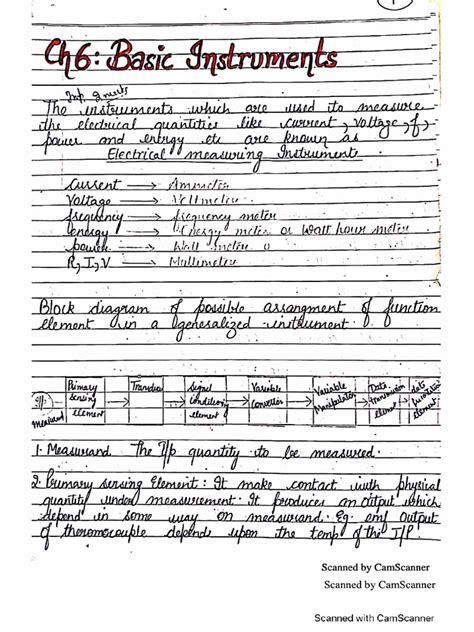 1
Ch6: Basic Instruments
Imp. 2 marks
The instruments which are used to measure
the electrical quantities like current, voltage, f,
power and energy etc are known as
Electrical measuring Instrument.
Current → Ammeter
Voltage → Voltmeter
frequency → frequency meter
energy → Energy meter or Watt hour meter
power → Watt meter
R, I, V → Multimeter
Block diagram of possible arrangment of function
element in a generalized instrument.
I/p measurand
Primary sensing element
Transducer
Signal condition element
Variable Convertor
Variable Manipulator
Data Transmission element
data element
1. Measurand. The I/p quantity to be measured.
2. Primary sensing Element: It make contact with physical
quantity under measurement. It produces an output which
depend in some way on measurand. Eg. emf output
of thermocouple depends upon the temp of the I/P.
Scanned by CamScanner
Scanned by CamScanner
Scanned with CamScanner